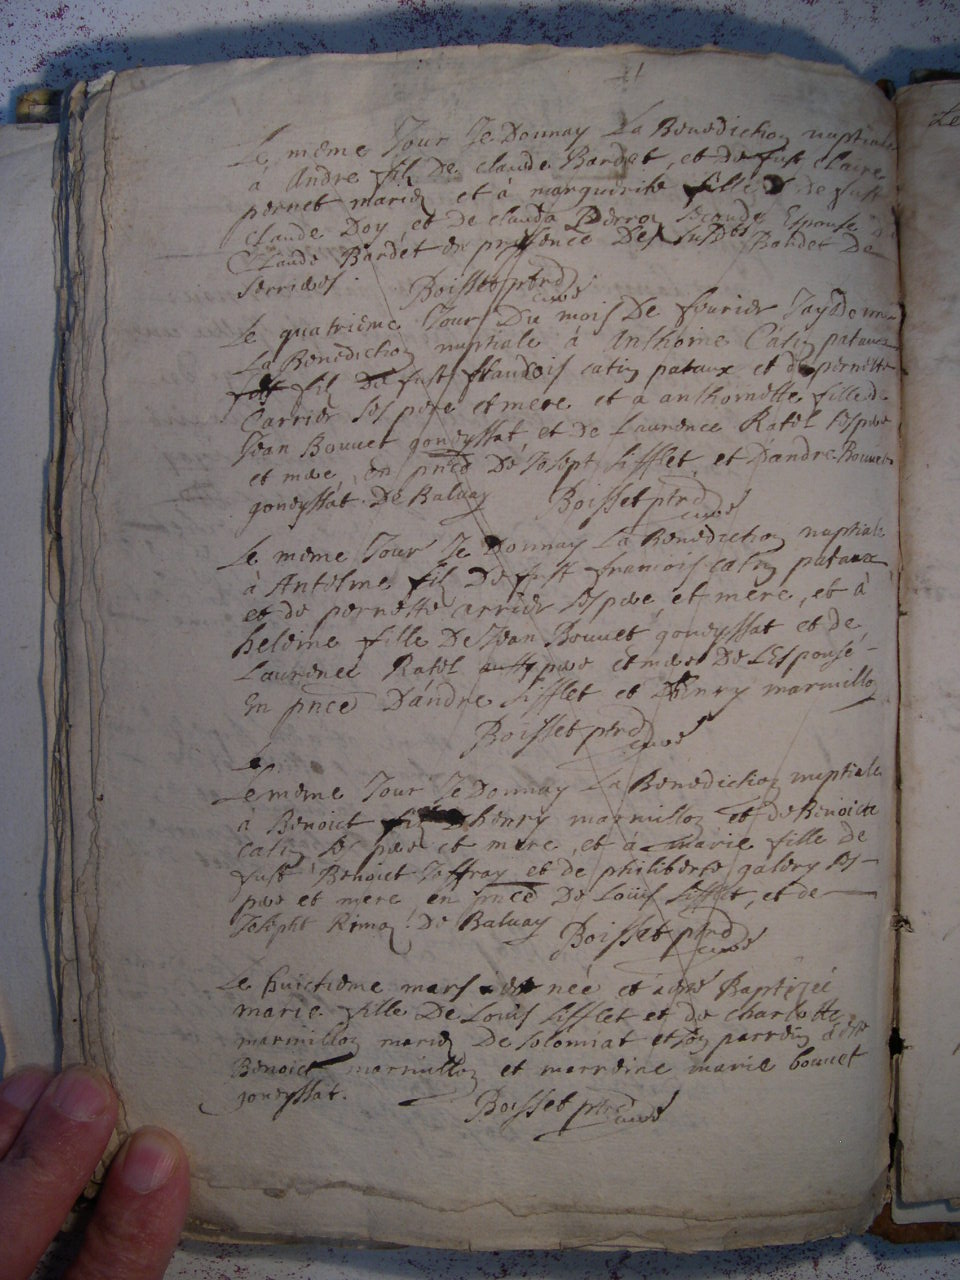 Le meme Jour Je Donnay La Benediction nuptiale
à Andre fil De claude Bardet, et de fust claire
pernet mariez et à marguerite fille de fust
Claude Doy et de clauda Perron seconde Espouse
Claude Bardet en presence Des susdts Bardet De
serrieres Boisset ptre curé
Le quatrieme Jour Du mois De feurier Jay Donné
La Benediction nuptiale à Anthoine Catin pataux
fil De fust francois catin pataux et de pernette
Carrier ses pere et mere et a anthoinette fille de
Jean Bouuet goneyssat, et de Laurence Ratel ses pere
et mere, en pnce De Joseph sifflet et Dandre Bouuet
goneyssat De Baluay Boisset ptre curé
Le meme Jour Je Donnay La Benediction nuptiale
à Antelme fil De fust francois catin pataux
et de pernette carrier ses pere et mere, et à
heleine fille De Jean Bouuet goneyssat et de
Laurence Ratel aussy pere et mere De LEspousé
En pnce D'andre sifflet et D'henry marmillon
Boisset ptre curé
Le
Le meme Jour Je Donnay La Benediction nuptiale
à Benoict fil D henry marmillon et de Benoicte
catin ses pere et mere, et à marie fille de
fust Benoict Joffray et de philiberte galery ses
pere et mere en pnce De Louis sifflet, et de
Joseph Rima De Baluay Boisset ptre curé
Le huictieme mars est née et a été Baptizée
marie fille De Louis sifflet et de charlotte
marmillon mariez De solomiat et son parrein a été
Benoict marmillon et marreine marie bouuet
goneyssat. Boisset ptre curé